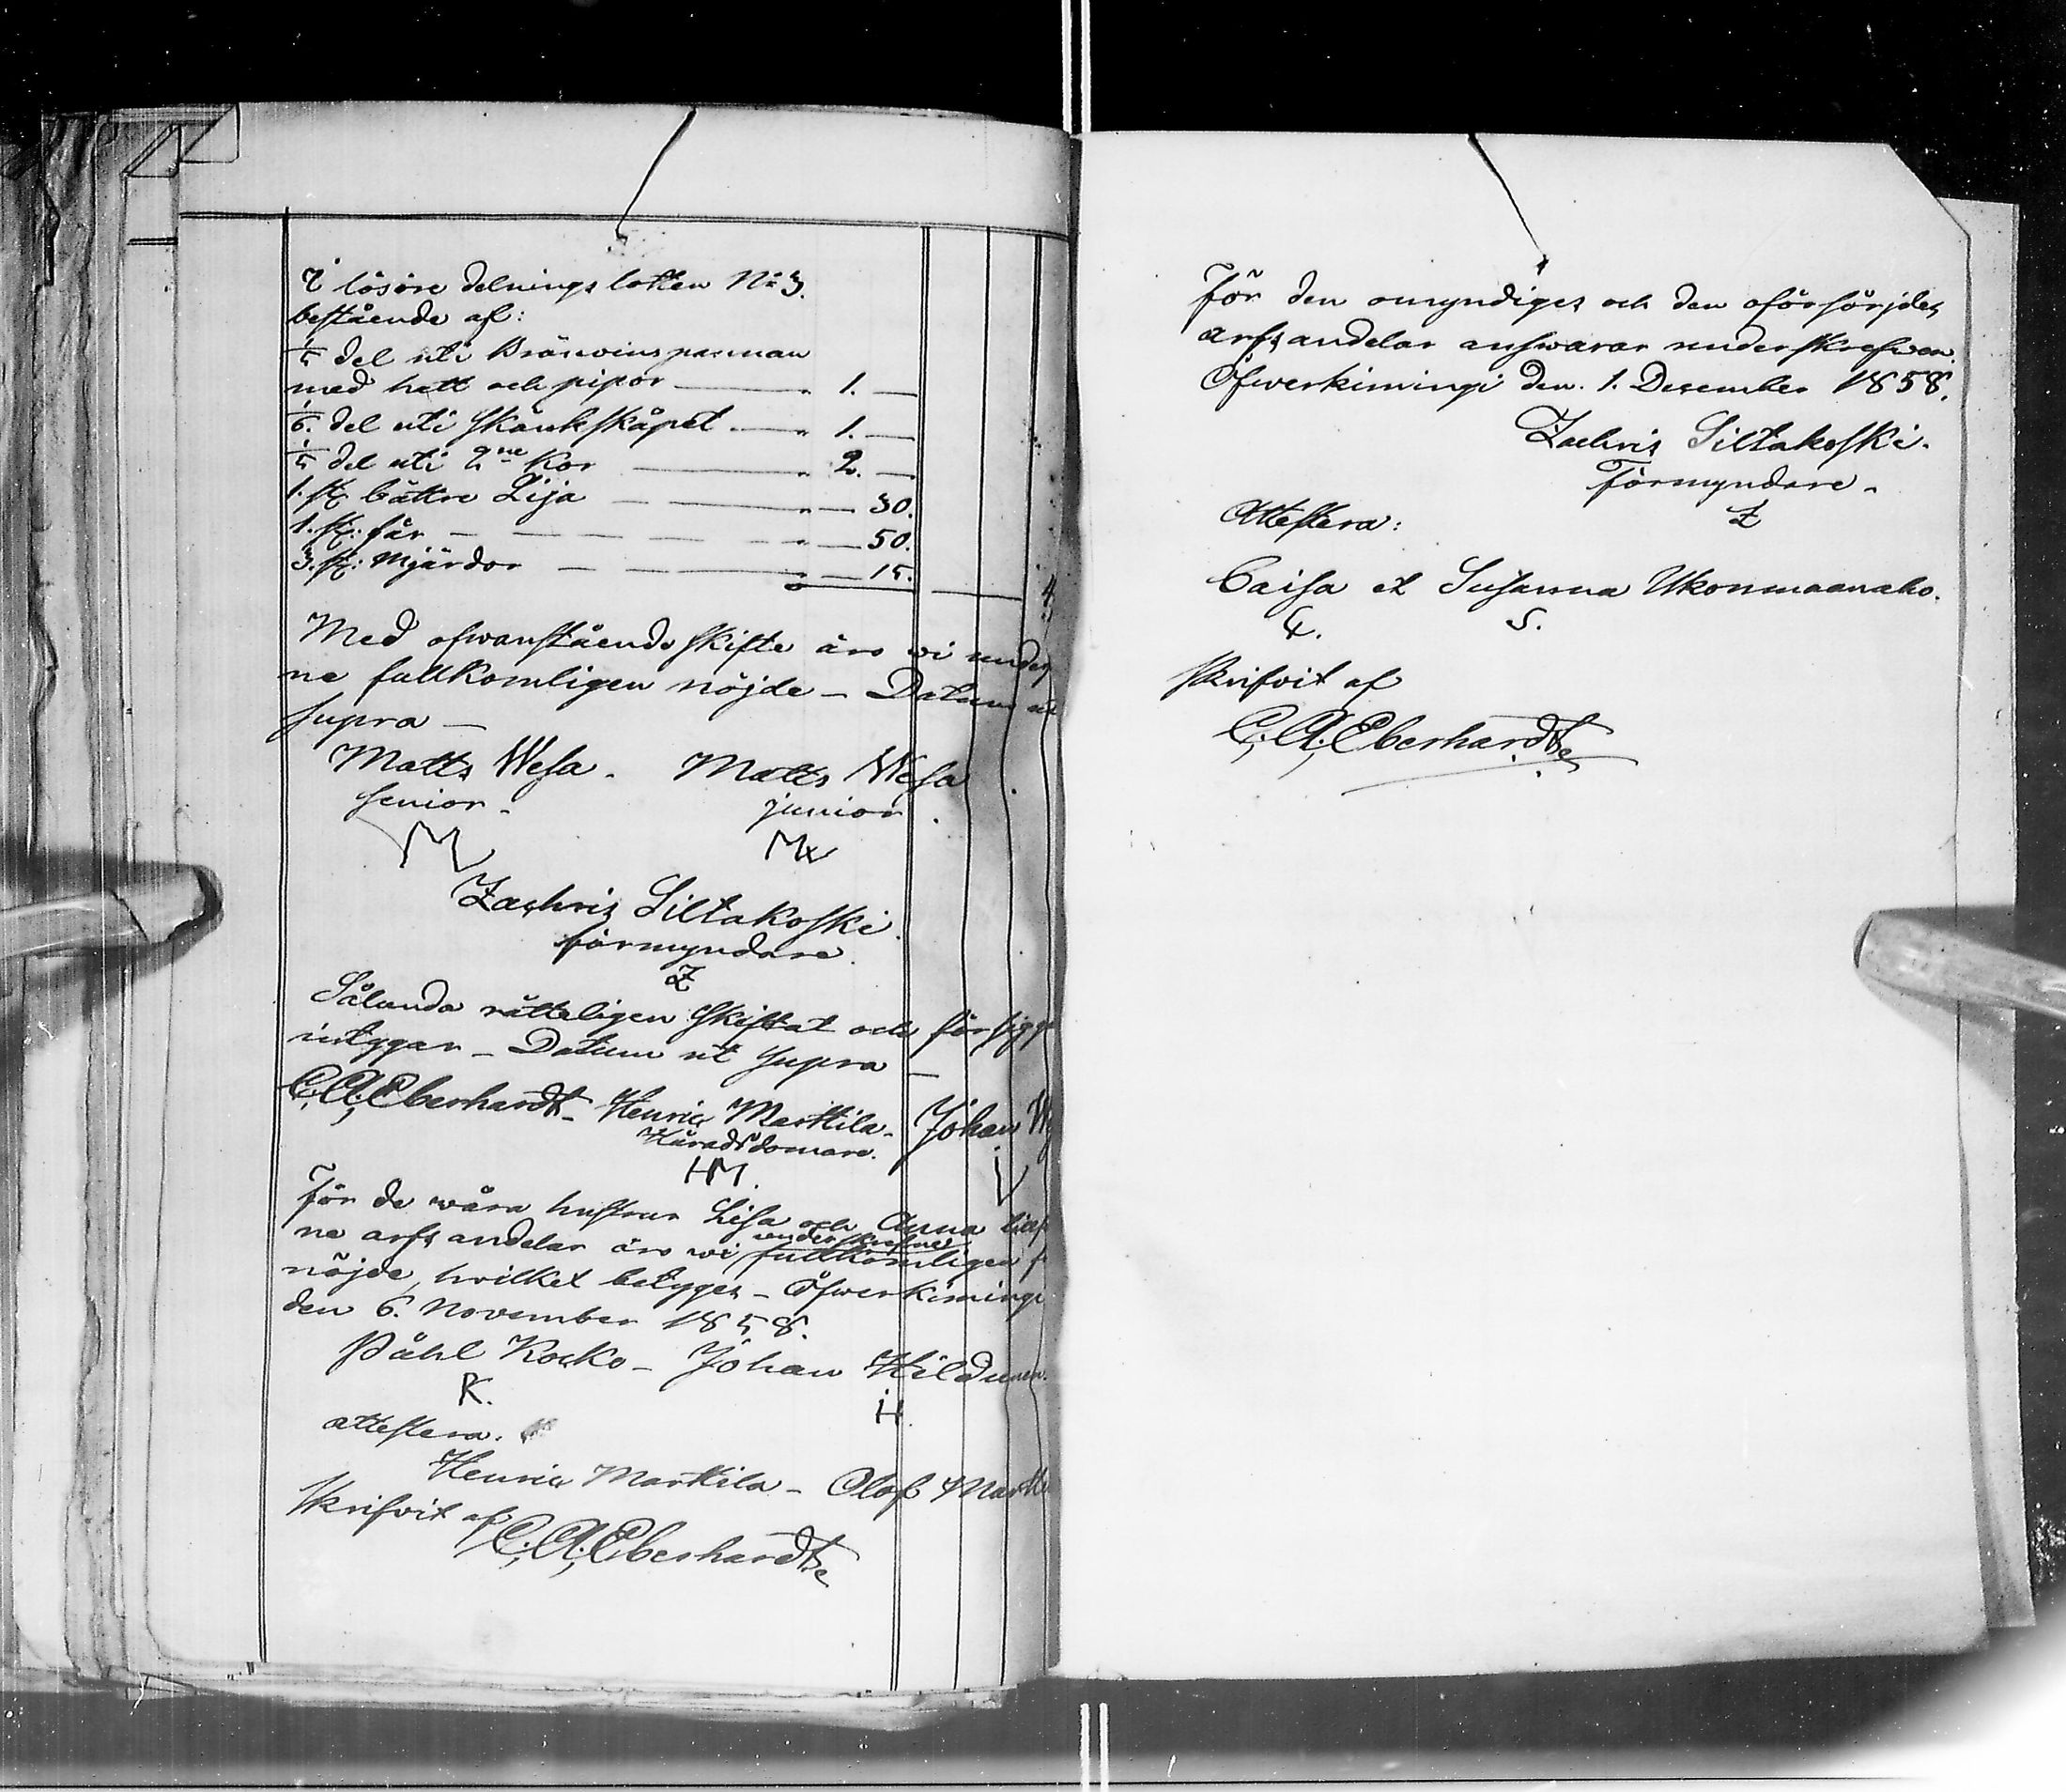 I lösöre delnings lotten N:o 3.
bestående af:
1/5 del uti Bränvinspannan
med hatt och pipor — " 1. —
1/6. del uti Skänkskåpet — " 1. —
1/5 del uti 2ne Kor — " 2. —
1. st. bättre Lija — " — 30.
1. st: får — " — 50.
3. st: Mjärdor — " — 15.
4
Med ofwanstående skifte äro wi under
ne fullkomligen nöjde — Datum ut
supra —
Matts Wesa. Matts Wesa
senior. junior.
M M
Zachris Siltakoski.
förmyndare.
Z
Sålunda rätteligen Skiftat och
intygar — Datum ut supra —
C. A. Eberhardt — Henric Marttila. Johan
Häradsdomare.
HM.
För de wåra hustrur Lisa och Anna
underskrefne
ne arfs andelar äro wi fullkomligen
nöjde, hvilket betyges — Öfwerkimingi
den 6. November 1858.
Påhl Kocko — Johan Hildunen.
PK. IH.
attestera.
Henric Marttila — Olof Martti
Skrifvit af C. A. Eberhardt
För den omyndiges och den oförsörjdes
arfs andelar answarar underskrefwen.
Öfwerkimingi den 1. December 1858.
Zachris Siltakoski.
Förmyndare.
Z
Attestera:
Caisa et Susanna Ukonmaanaho.
C. S.
Skrifvit af
C. A. Eberhardt